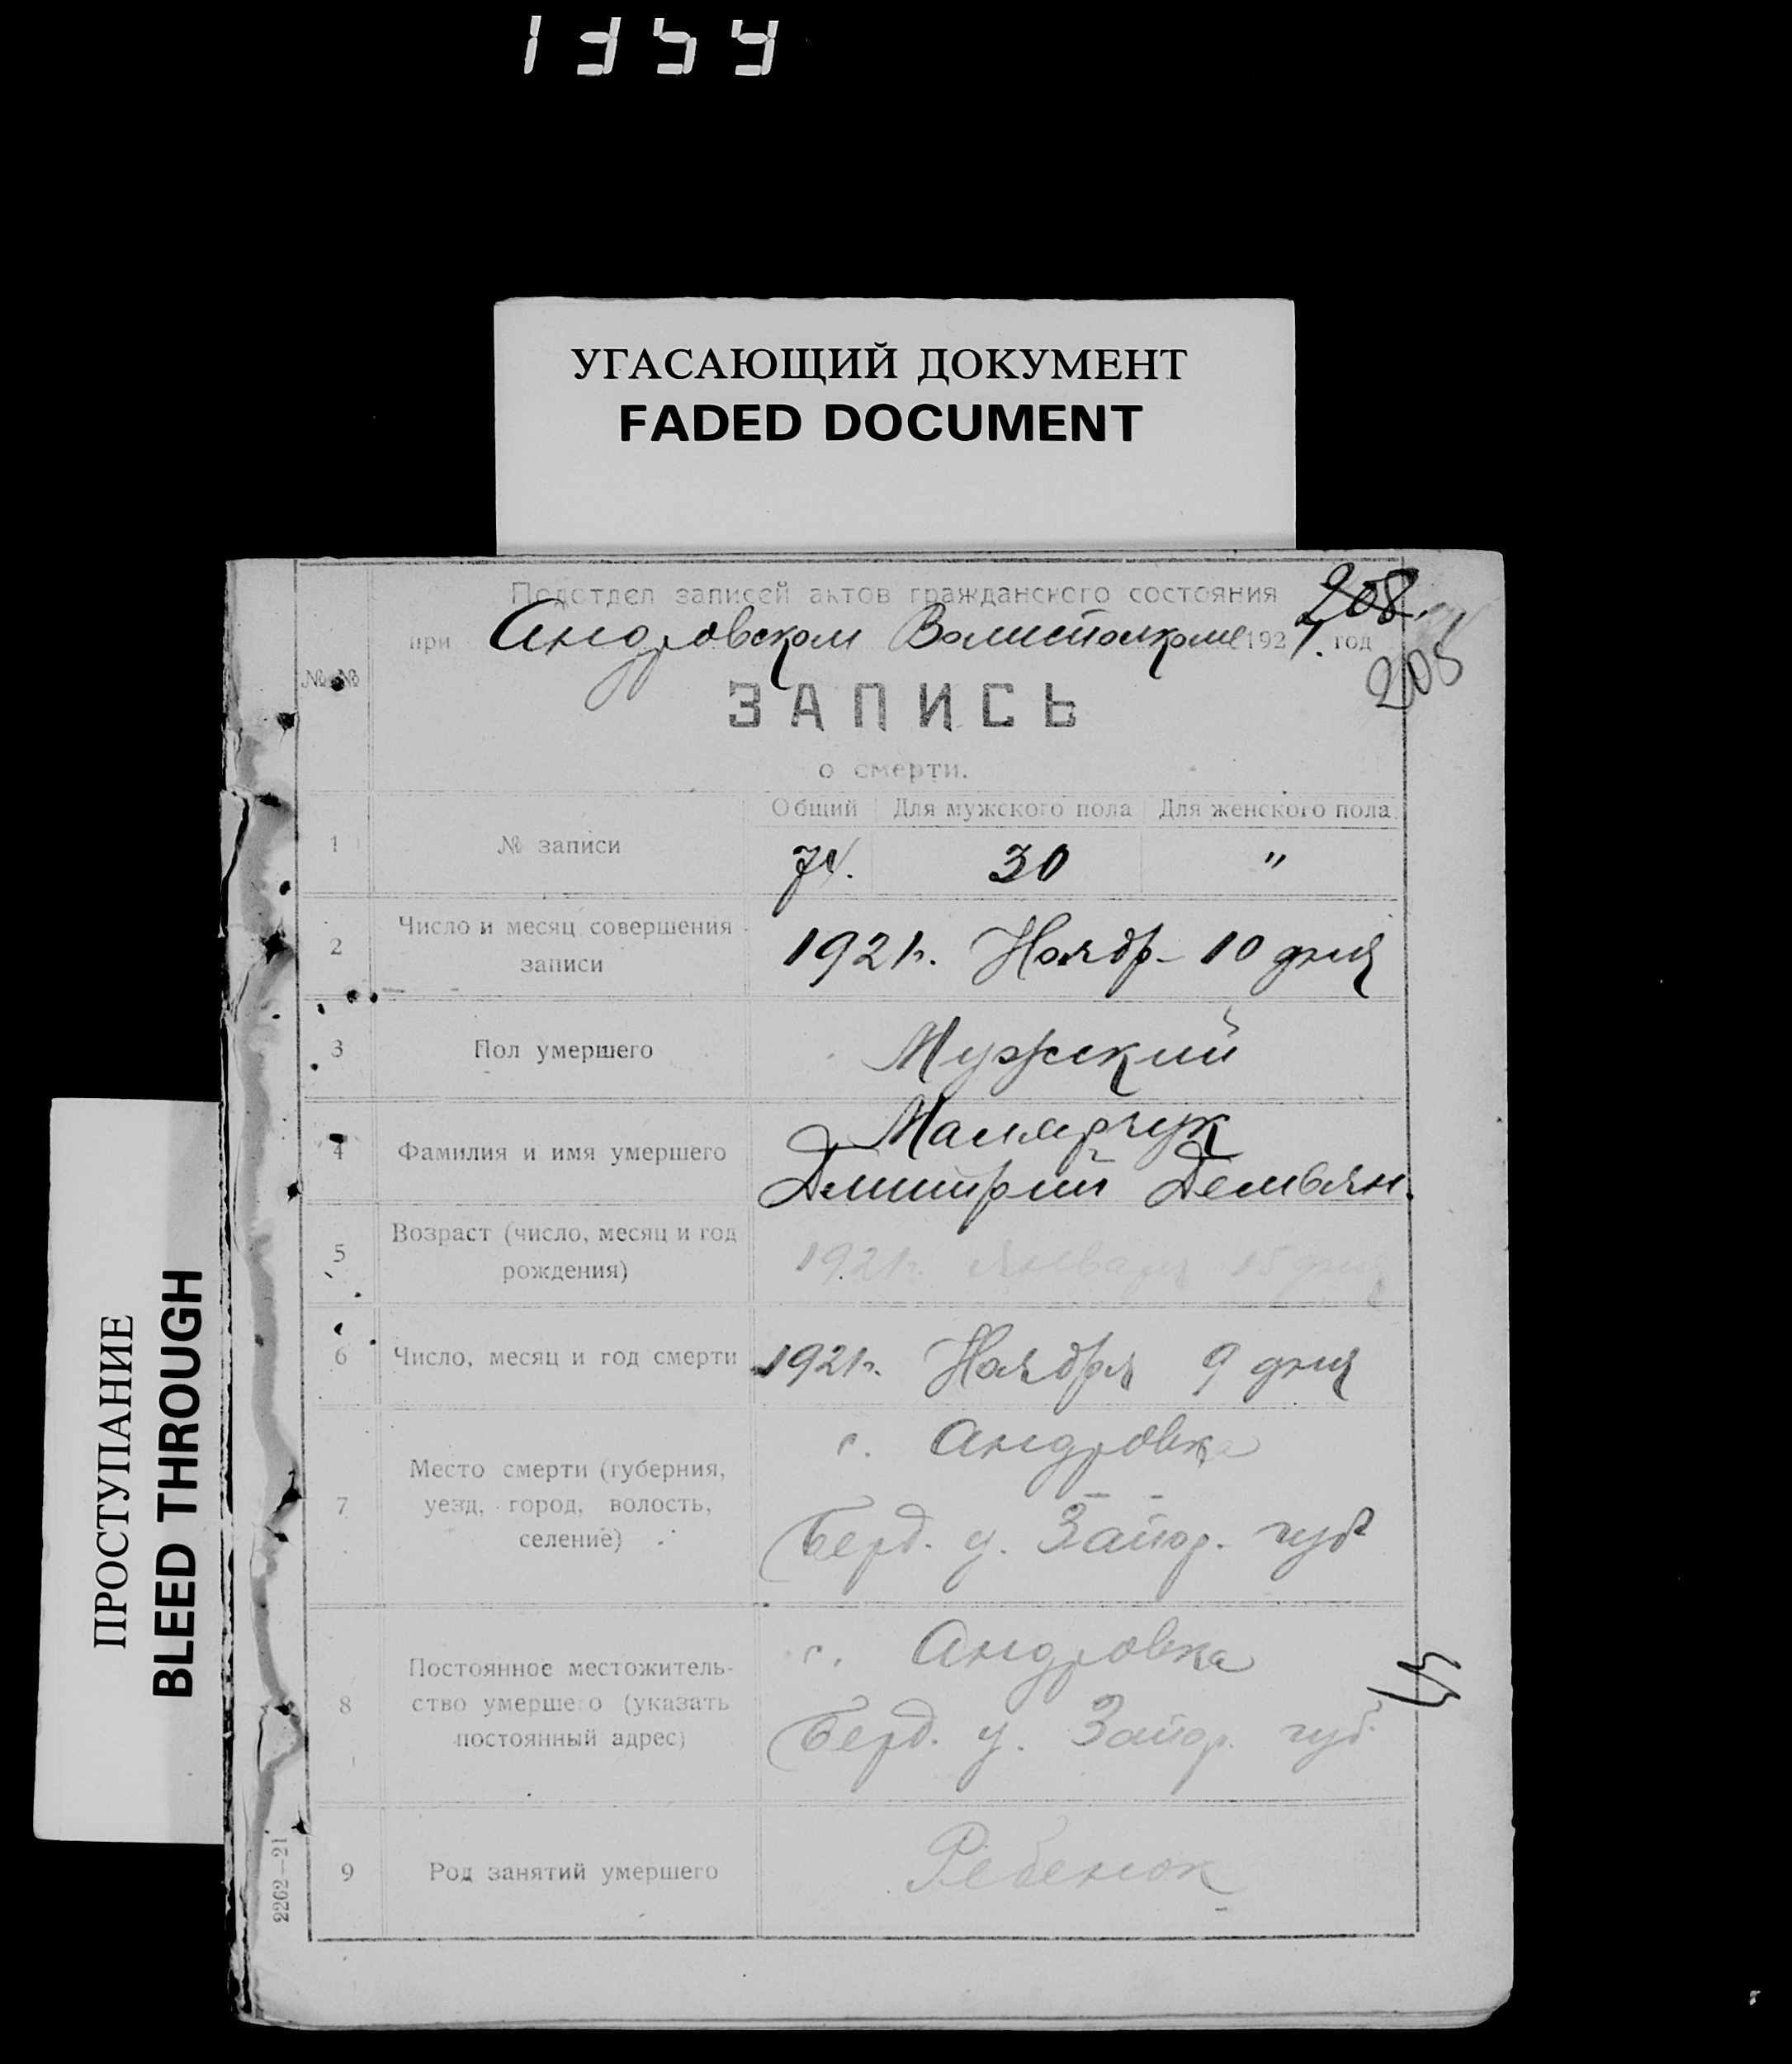 1354
УГАСАЮЩИЙ ДОКУМЕНТ
FADED DOCUMENT
ПРОСТУПАНИЕ
BLEED THROUGH
208.
205
Подотдел записей актов гражданского состояния
при Андровском Волисполкоме 1921. год
№№
ЗАПИСЬ
о смерти.
Общий Для мужского пола Для женского пола
1 № записи 74. 30 "
2 Число и месяц совершения
записи 1921г. Ноябр- 10 дня
3 Пол умершего Мужской
4 Фамилия и имя умершего Малярчук
Дмитрий Демьян.
5 Возраст (число, месяц и год
рождения) 1921г. Января 15 дня
6 Число, месяц и год смерти 1921г. Ноября 9 дня
7 Место смерти (губерния,
уезд, город, волость,
селение)
с. Андровка
Берд. у. Запор. губ
8 Постоянное местожитель-
ство умершего (указать
постоянный адрес)
с. Андровка
Берд. у. Запор. губ.
9 Род занятий умершего Ребенок
2262—21